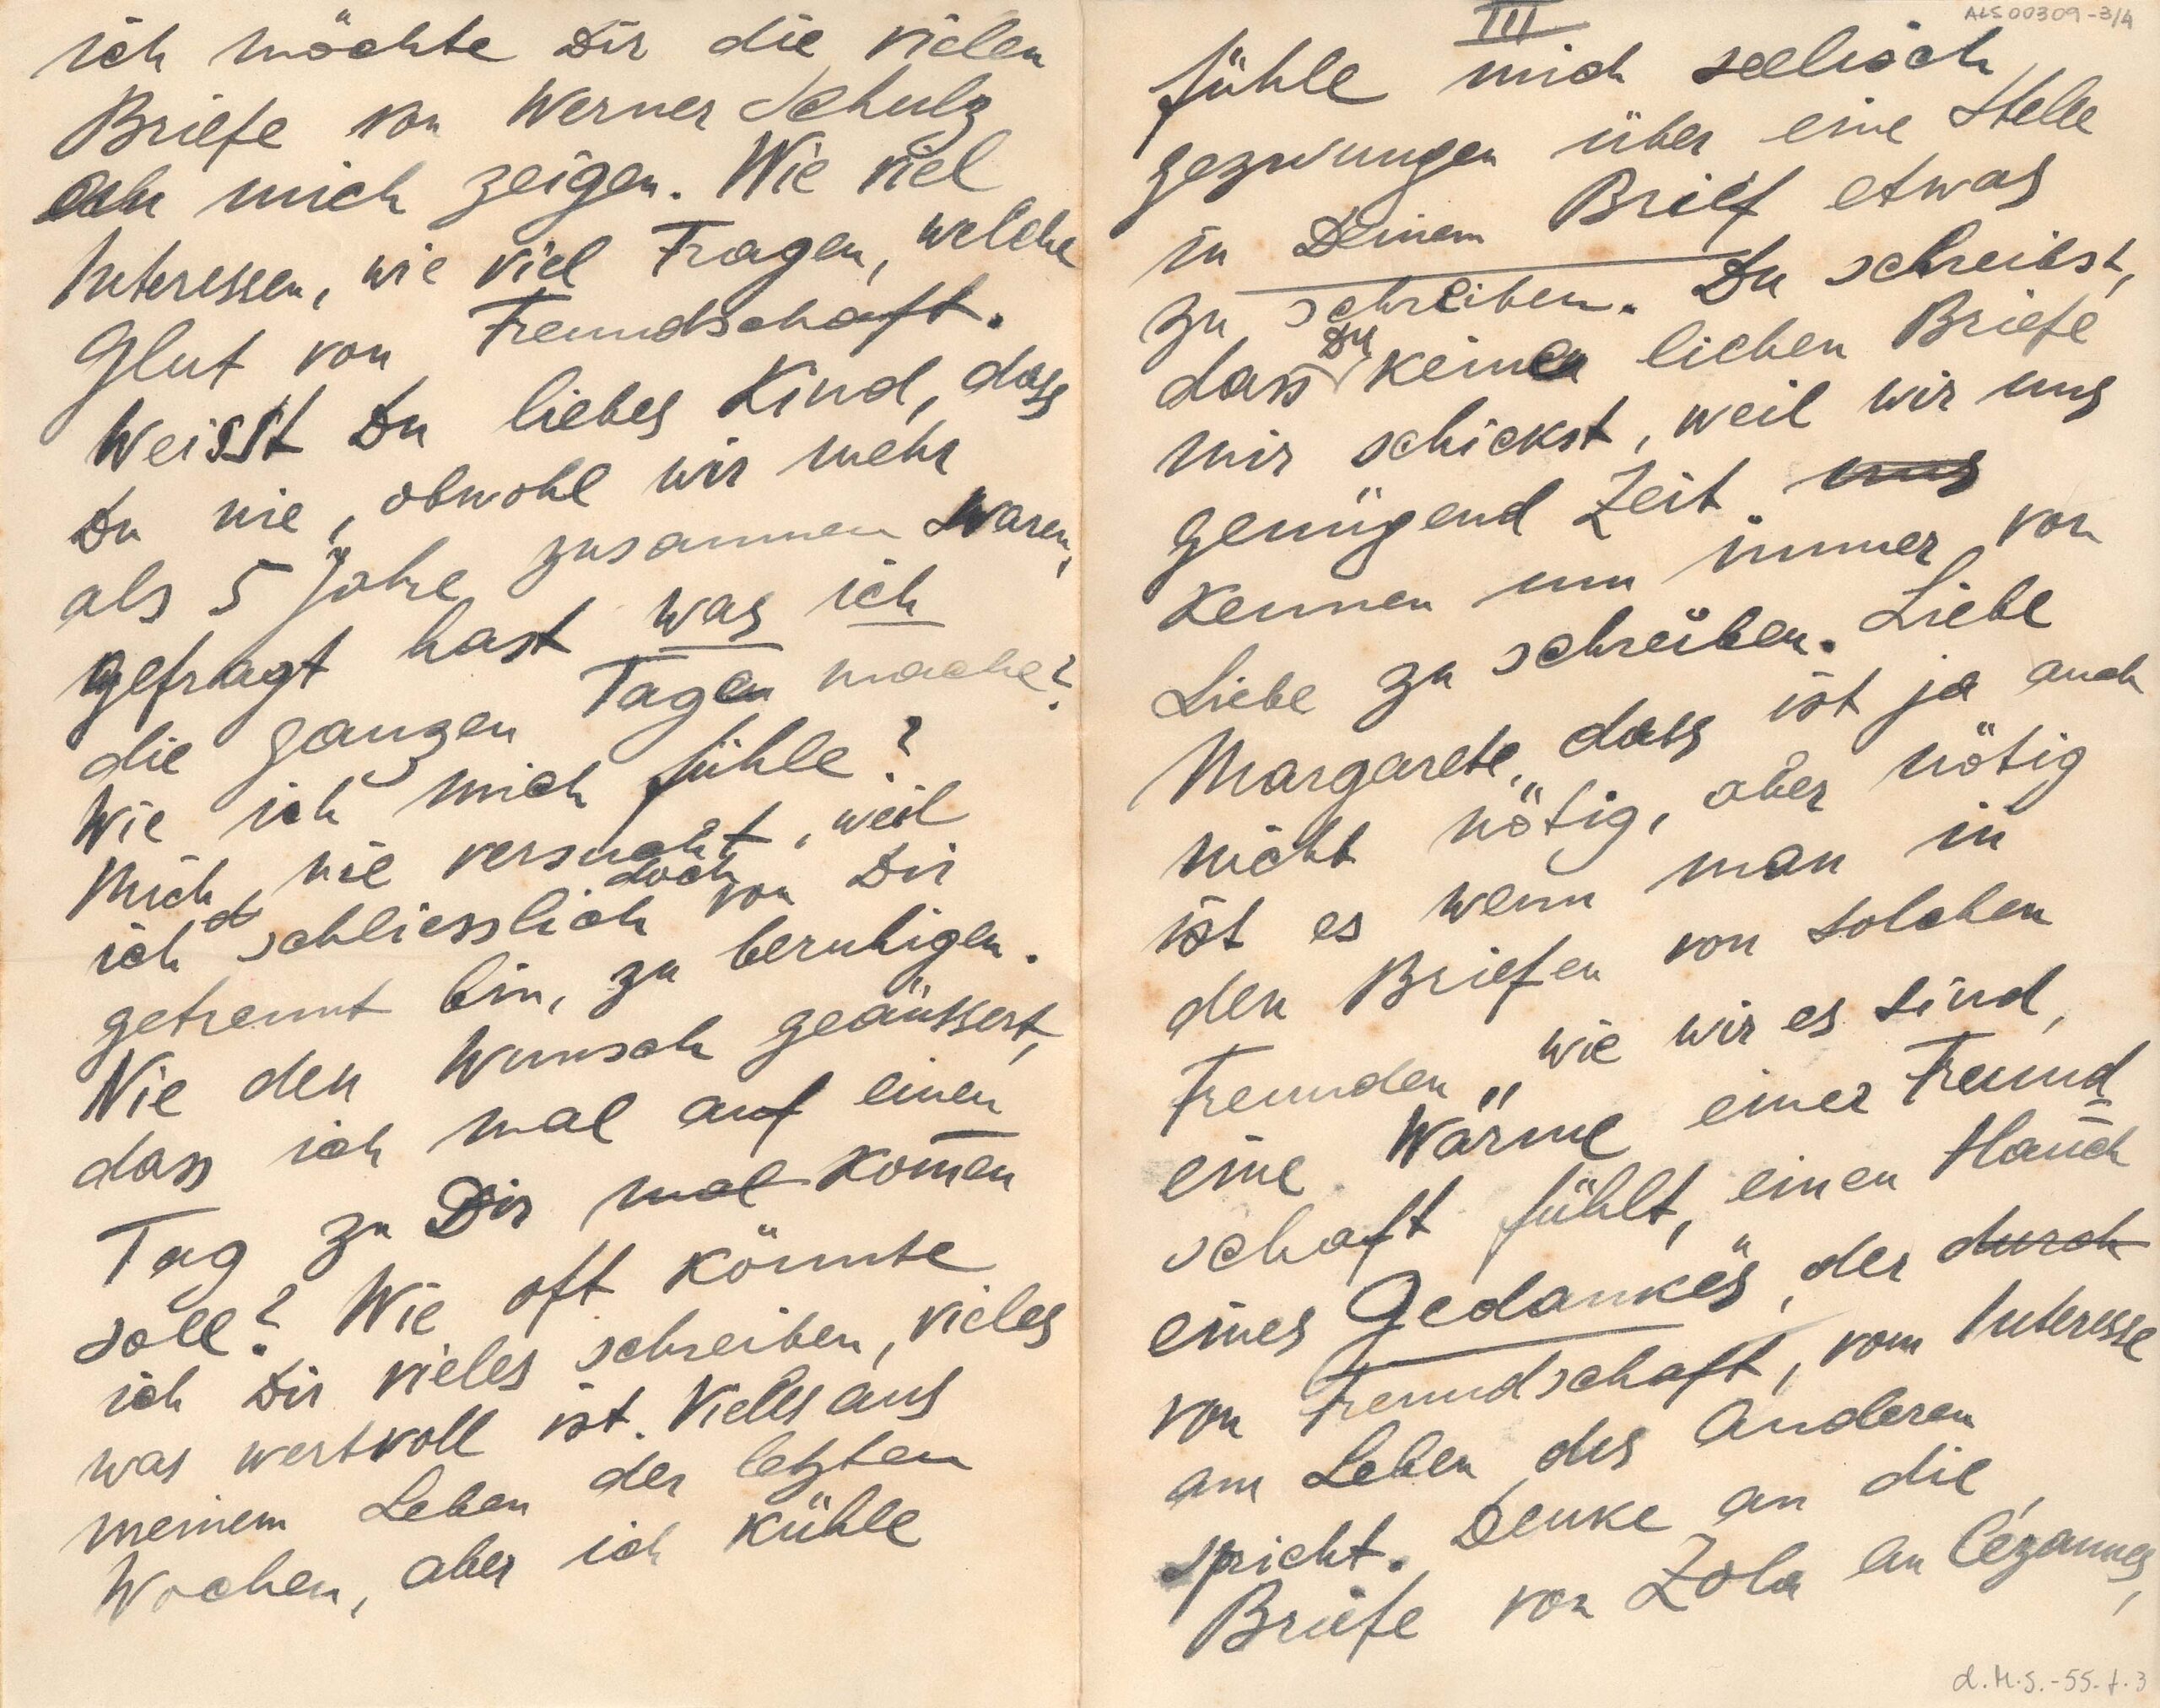 ich möchte Dir die vielen
Briefe von Werner Schulz
an mich zeigen. Wie viel
Interessen, wie viel Fragen, welche
Glut von Freundschaft.
Weisst Du liebes Kind, dass
Du nie, obwohl wir mehr
als 5 Jahre zusammen waren,
gefragt hast was ich
die ganzen Tagen mache?
Wie ich mich fühle?
Mich nie versucht, weil
ich schliesslich doch von Dir
getrennt bin, zu beruhigen.
Nie den Wunsch geäussert,
dass ich mal auf einen
Tag zu Dir mal komen
soll? Wie oft könnte
ich Dir vieles schreiben, vieles
was wertvoll ist. Vieles aus
meinem Leben der letzten
Wochen, aber ich kühle
ALS00309-3/4
III
fühle mich seelisch
gezwungen über eine Stelle
in Deinem Brief etwas
zu schreiben. Du schreibst,
dass Du keinen lieben Briefe
mir schickst, weil wir uns
genügend Zeit uns
kennen um immer von
Liebe zu schreiben. Liebe
Margarete, dass ist ja auch
nicht nötig, aber nötig
ist es wenn man in
den Briefen von solchen
Freunden „wie wir es sind,
eine "Wärme einer Freund=
schaft fühlt, einen Hauch
eines Gedankes", der durch
von Freundschaft, vom Interesse
am Leben des Anderen
spricht. Denke an die
Briefe von Zola an Cézannes,
d.M.S.-55.f.3